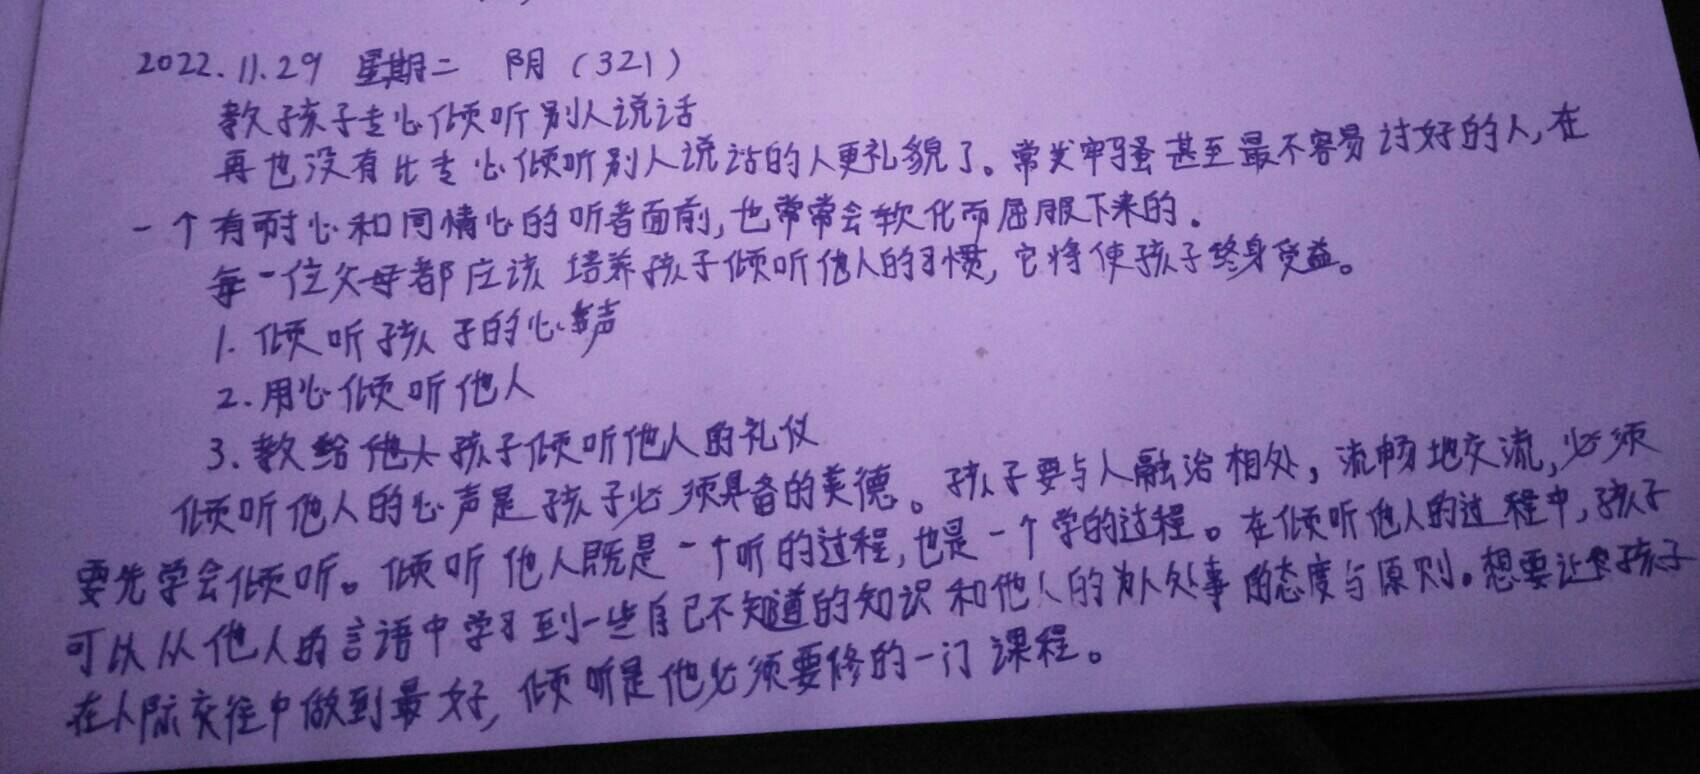 2022.11.29 星期二 阴（321）
教孩子专心倾听别人说话
再也没有比专心倾听别人说话的人更礼貌了。常发牢骚甚至最不容易讨好的人,在
一个有耐心和同情心的听者面前,也常常会软化而屈服下来的。
每一位父母都应该培养孩子倾听他人的习惯,它将使孩子终身受益。
1.倾听孩子的心声
2.用心倾听他人
3.教给孩子倾听他人的礼仪
倾听他人的心声是孩子必须具备的美德。孩子要与人融洽相处,流畅地交流,必须
要先学会倾听。倾听他人既是一个听的过程,也是一个学的过程。在倾听他人的过程中,孩子
可以从他人的言语中学习到一些自己不知道的知识和他人的为人处事的态度与原则。想要让孩子
在人际交往中做到最好,倾听是他必须要修的一门课程。